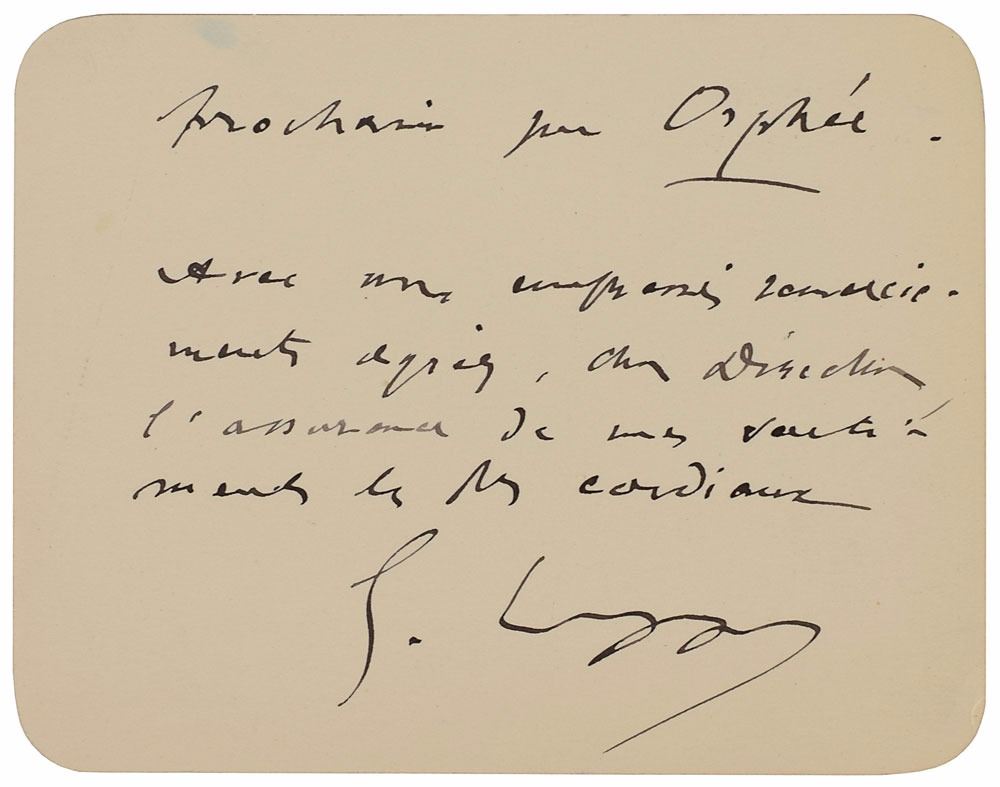 prochain par Orphée.
Avec mes empressés remercie-
ments agréez, cher Directeur
l'assurance de mes senti-
ments les plus cordiaux
G.